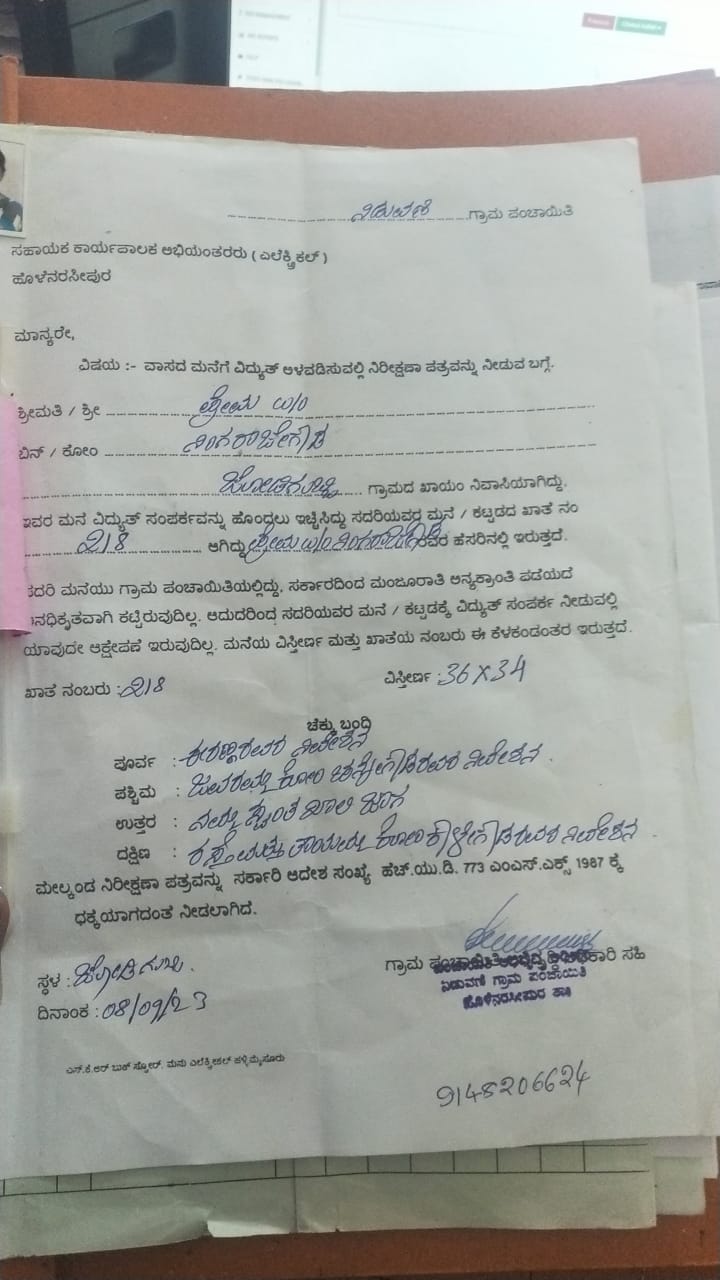 ನಿಡುವಣಿ ಗ್ರಾಮ ಪಂಚಾಯಿತಿ
ಸಹಾಯಕ ಕಾರ್ಯಪಾಲಕ ಅಭಿಯಂತರರು ( ಎಲೆಕ್ಟ್ರಿಕಲ್ )
ಹೊಳೆನರಸೀಪುರ
ಮಾನ್ಯರೇ,
ವಿಷಯ :- ವಾಸದ ಮನೆಗೆ ವಿದ್ಯುತ್ ಅಳವಡಿಸುವಲ್ಲಿ ನಿರೀಕ್ಷಣಾ ಪತ್ರವನ್ನು ನೀಡುವ ಬಗ್ಗೆ.
ಶ್ರೀಮತಿ / ಶ್ರೀ ಪ್ರೇಮ W/O
ಬಿನ್ / ಕೋಂ ನಿಂಗರಾಜೇಗೌಡ
ಗ್ರಾಮದ ಖಾಯಂ ನಿವಾಸಿಯಾಗಿದ್ದು.
ಇವರ ಮನೆ ವಿದ್ಯುತ್ ಸಂಪರ್ಕವನ್ನು ಹೊಂದಲು ಇಚ್ಛಿಸಿದ್ದು ಸದರಿಯವರ ಮನೆ / ಕಟ್ಟಡದ ಖಾತೆ ನಂ
218 ಆಗಿದ್ದು ಪ್ರೇಮ W/O ನಿಂಗರಾಜೇಗೌಡ ರವರ ಹೆಸರಿನಲ್ಲಿ ಇರುತ್ತದೆ.
ಸದರಿ ಮನೆಯು ಗ್ರಾಮ ಪಂಚಾಯಿತಿಯಲ್ಲಿದ್ದು, ಸರ್ಕಾರದಿಂದ ಮಂಜೂರಾತಿ ಅನ್ಯಕ್ರಾಂತಿ ಪಡೆಯದೆ
ಅನಧಿಕೃತವಾಗಿ ಕಟ್ಟಿರುವುದಿಲ್ಲ. ಆದುದರಿಂದ ಸದರಿಯವರ ಮನೆ / ಕಟ್ಟಡಕ್ಕೆ ವಿದ್ಯುತ್ ಸಂಪರ್ಕ ನೀಡುವಲ್ಲಿ
ಯಾವುದೇ ಆಕ್ಷೇಪಣೆ ಇರುವುದಿಲ್ಲ. ಮನೆಯ ವಿಸ್ತೀರ್ಣ ಮತ್ತು ಖಾತೆಯ ನಂಬರು ಈ ಕೆಳಕಂಡಂತರ ಇರುತ್ತದೆ.
ಖಾತೆ ನಂಬರು : 218 ವಿಸ್ತೀರ್ಣ : 36 X 34
ಚೆಕ್ಕು ಬಂದಿ
ಪೂರ್ವ : ನಿವೇಶನ
ಪಶ್ಚಿಮ : ಜವರಮ್ಮ ಕೋಂ ನಿವೇಶನ.
ಉತ್ತರ : ನಮ್ಮ ಸ್ವಂತ ಖಾಲಿ ಜಾಗ
ದಕ್ಷಿಣ : ರಸ್ತೆ ಮತ್ತು ತಾಯಮ್ಮ ಕೋಂ ಕಾಳೇಗೌಡರವರ ನಿವೇಶನ.
ಮೇಲ್ಕಂಡ ನಿರೀಕ್ಷಣಾ ಪತ್ರವನ್ನು ಸರ್ಕಾರಿ ಆದೇಶ ಸಂಖ್ಯೆ ಹೆಚ್.ಯು.ಡಿ. 773 ಎಂಎಸ್.ಎಕ್ಸ್ 1987 ಕ್ಕೆ
ಧಕ್ಕೆಯಾಗದಂತೆ ನೀಡಲಾಗಿದೆ.
ಗ್ರಾಮ ಪಂಚಾಯಿತಿ ಅಭಿವೃದ್ಧಿ ಅಧಿಕಾರಿ ಸಹಿ
ನಿಡುವಣಿ ಗ್ರಾಮ ಪಂಚಾಯಿತಿ
ಹೊಳೆನರಸೀಪುರ ತಾ||
ಸ್ಥಳ :
ದಿನಾಂಕ : 08/09/23
ಎಸ್.ಕೆ.ಆರ್ ಬುಕ್ ಸ್ಟೋರ್. ಮನು ಎಲೆಕ್ಟ್ರಿಕಲ್
9148206624